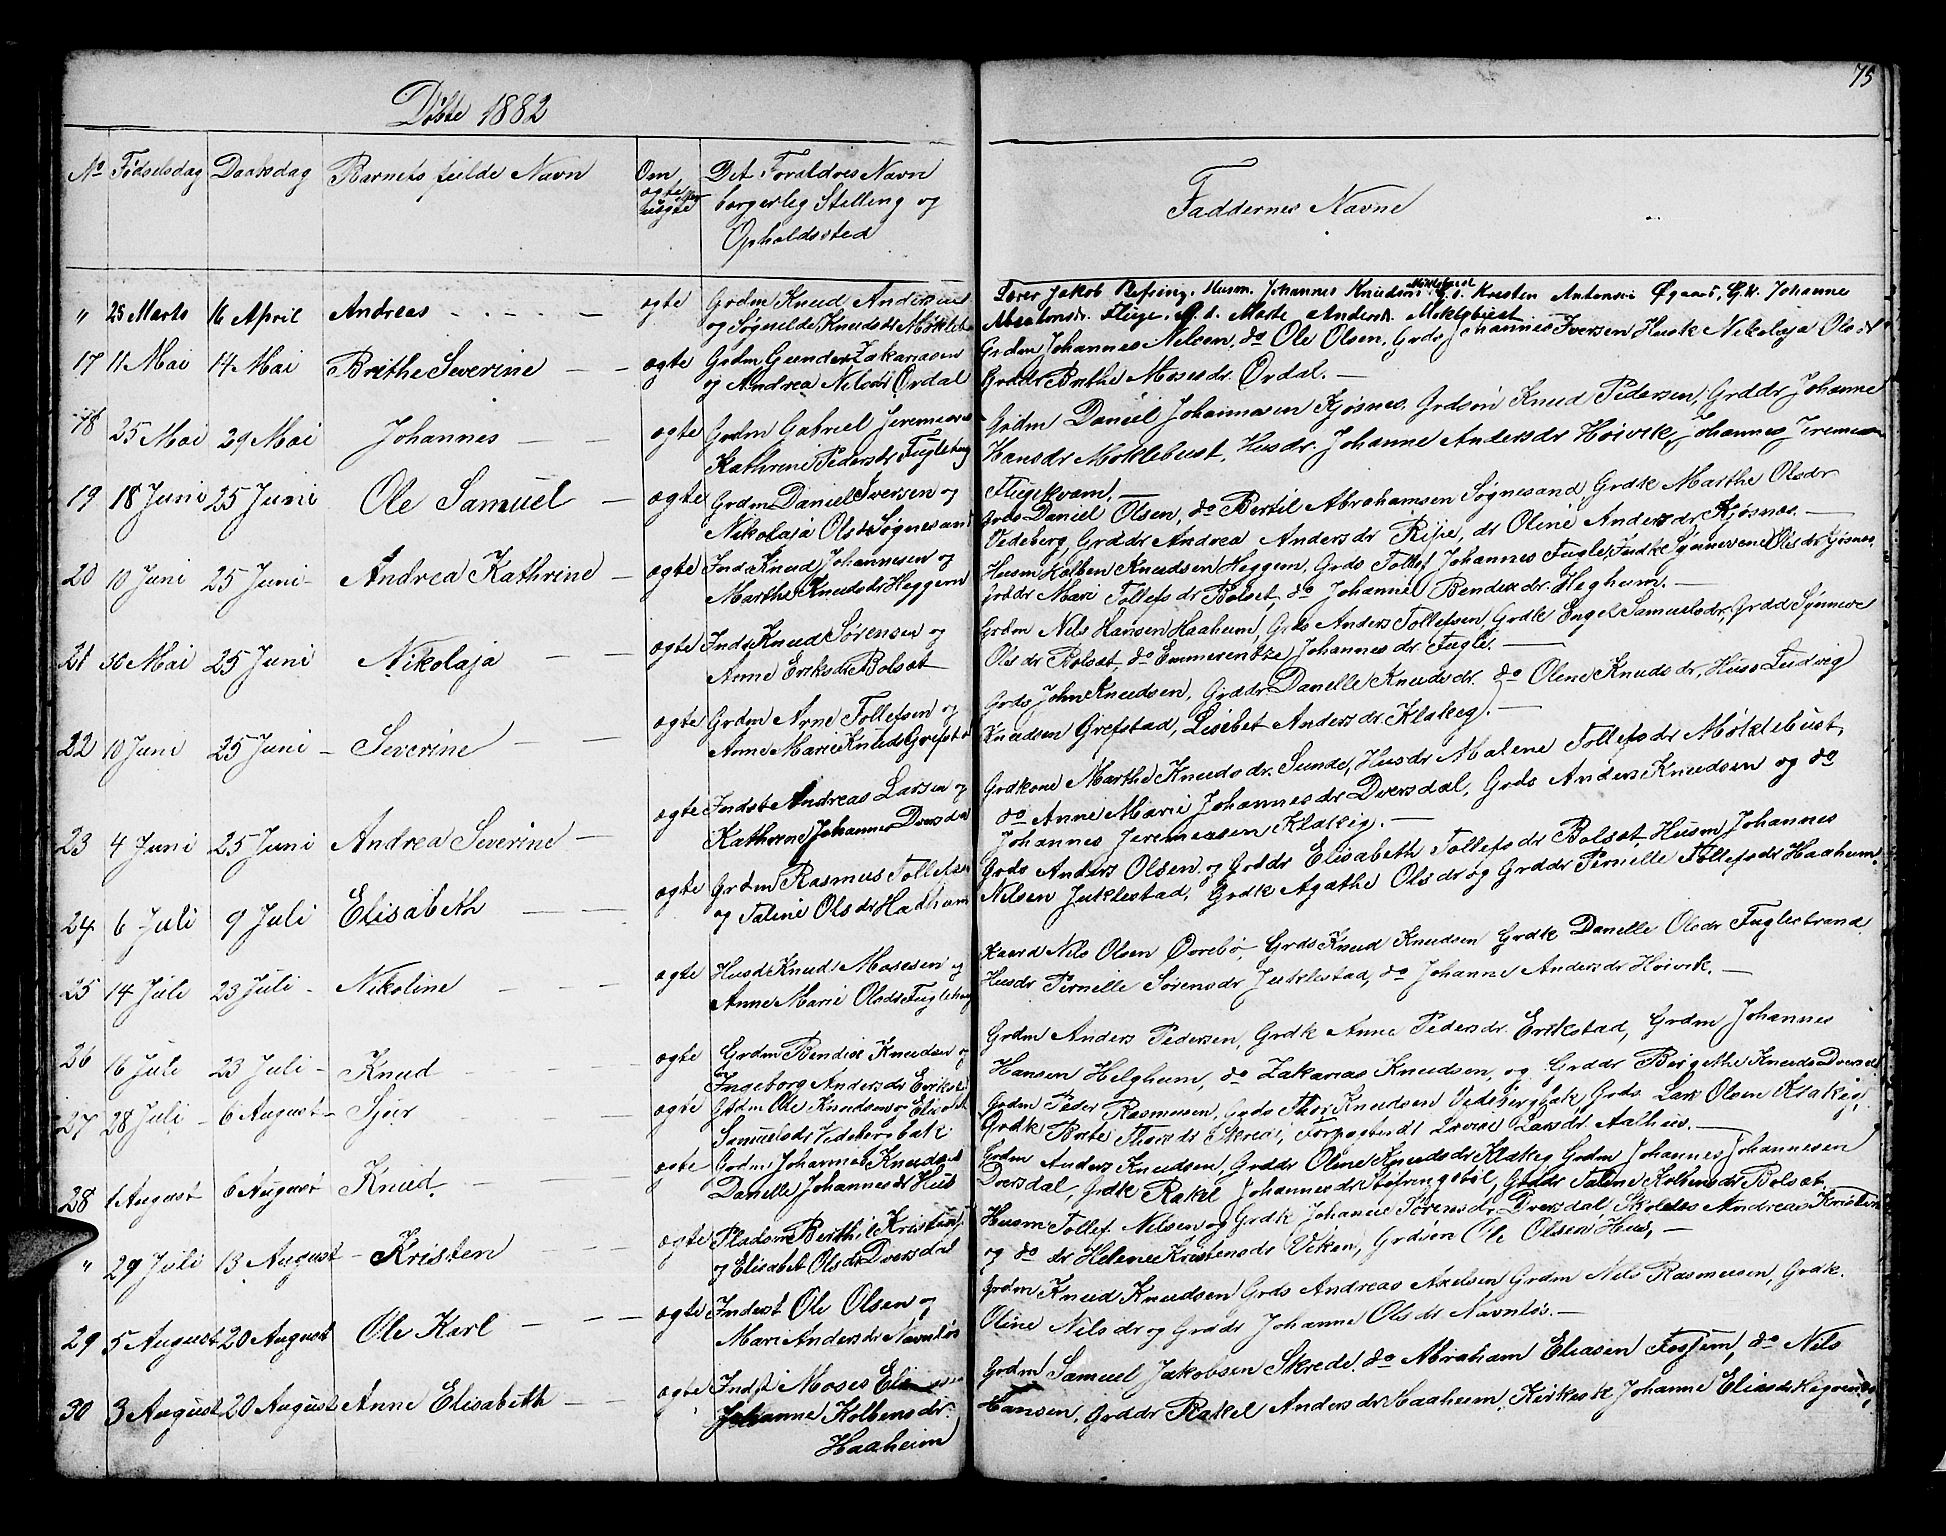 75
Döbte 1882
No Födselsdag Daabsdag Barnets fulde Navn
Om ægte eller uægte
Det Foraldres Navn
borgerlig Stelling og
Opholdssted
Faddernes Navne
" 25 Marts 16 April Andreas ægte Grdm Knud Andersen
og Søgnilde Knudsdr Möklebu
Lærer Jakob Refsing, Husm. Johannes Knudsen Möklebust G.s. Kresten Antonsen Øgaard, G.k. Johanne
Absalonsdr. Fluge, G.d. Marte Andersdr. Moklebust
17 11 Mai 14 Mai Brithe Severine ægte Grdm Gunder Zakariasen
og Andrea Nilsdr Ordal
Grdm Johannes Nilsen, do Ole Olsen, Grds Johannes Iversen Husk Nikolaja Olsdr
Grddr Brithe Mosesdr. Ordal.
18 25 Mai 29 Mai Johannes ægte Grdm Gabriel Jeremiasen
Kathrine Pedersdr Fuglehaug
Grdm Daniel Johannesen Kjøsnes. Grdsön Knud Pedersen, Grddr Johanne
Hansdr Moklebust, Husdr. Johanne Andersdr Hoivik, Johannes Jeremiasen
Flugekvam.
19 18 Juni 25 Juni Ole Samuel ægte Grdm Daniel Iversen og
Nikolaja Olsdr Søgnesand
Grds Daniel Olsen, do Bertil Abrahamsen Søgnesand Grdk Marthe Olsdr
Vedeberg, Grddr Andrea Andersdr Ripe, dr Oline Andersdr Kjøsnes.
20 10 Juni 25 Juni Andrea Kathrine ægte Inds Knud Johannesen og
Marthe Knudsdr Heggem
Husm Kolben Knudsen Heggem, Grds Tollef Johannes Fugle, Indk Synneve Olsdr Kjøsnes,
Grddr Mari Tollefsdr Bolset, do Johanne Bendixdr. Heghum.
21 30 Mai 25 Juni Nikolaja ægte Inds Knud Sørensen og
Anne Eriksdr Bolset
Grdm Nils Hansen Haaheim, Grds Anders Tollefsen, Grdk Engel Samuelsdr, Grdd Synneve
Olsdr Bolset, do Emmerentze Johannesdr Fugle.
22 10 Juni 25 Juni Severine ægte Grdm Arne Tollefsen og
Anne Marie Knudsdr Grefstad
Grds John Knudsen, Grddr Danelle Knudsdr. do Oline Knudsdr, Huss Ludvig
Knudsen Grefstad, Lisebet Andersdr. Klakeg.
23 4 Juni 25 Juni Andrea Severine ægte Indst Andreas Larsen og
Kathrine Johannesdr Dversdal
Grdkone Marthe Knudsdr. Sunde, Husdr Malene Tollefsdr Möklebust,
do Anne Marie Johannesdr Dversdal, Grds Anders Knudsen og do
Johannes Jeremiasen Klakeg.
24 6 Juli 9 Juli Elisabeth ægte Grdm Rasmus Tollefsen
og Taline Olsdr Haaheim
Grds Anders Olsen og Grddr Elisabeth Tollefsdr Bolset, Husm Johannes
Nilsen Juklestad, Grdk Agathe Olsdr og Grddr Pernelle Tollefsdr Haahem.
25 14 Juli 23 Juli Nikoline ægte Husd Knud Mosesen og
Anne Marie Olsdr Fuglehaug
Kaard Nils Olsen Övrebö, Grds Knud Knudsen Grdk Danelle Olsdr Fuglestrand
Husdr Pernille Sørensdr Juklestad, do Johanne Andersdr Hoivik.
26 16 Juli 23 Juli Knud ægte Grdm Bendix Knudsen og
Ingeborg Andersdr Erikst
Grdm Anders Pedersen, Grdk Anne Pedersdr. Erikstad, Grdm Johannes
Hansen Helghum, do Zakarias Knudsen, og Grddr Birgethe Knudsdr Dversdal
27 28 Juli 6 August Sjur ægte Grdm Ole Knudsen og Elisabet
Samuelsdr Vedebergbak
Grdm Peder Rasmusen, Grds Thor Knudsen Vedebergbak Grds. Lars Olsen Klakeg,
Grdk Brite Thorsdr Skrei, Forpagterdr Lovise Larsdr. Aalhus.
28 1 August 6 August Knud ægte Grdm Johannes Knudsen
Danelle Johannesdr Hus
Grdm Anders Knudsen, Grddr Oline Knudsdr Klakeg Grdm Johannes Johannesen
Dversdal, Grdk Rakel Johannesdr Støfringsböl, Grddr Taline Kolbensdr Bolset
" 29 Juli 13 August Kristen ægte Pladsm Berthil Kristens
og Elisabet Olsdr Dversdal
Husm Tollef Nilsen og Grdk Johanne Sörensdr. Dversdal, Skoleles Andreas Kristen
og do dr Helene Kristensdr Viken, Grdsön Ole Olsen Hus,
29 5 August 20 August Ole Karl ægte Inderst Ole Olsen og
Mari Andersdr Navnløs
Grdm Knud Knudsen Grds Andreas Axelsen Grdm Nils Rasmusen, Grdk.
Oline Nilsdr og Grddr Johanne Olsdr Navnløs.
30 3 August 20 August Anne Elisabeth ægte Indst Moses
Johanne Kolbensdr.
Haaheim
Grdm Samuel Jakobsen Skrede do Abraham Eliasen Fossum, do Nils
Hansen, Grddr Rakel Andersdr Haaheim, Kirkesk Johanne Eliasdr